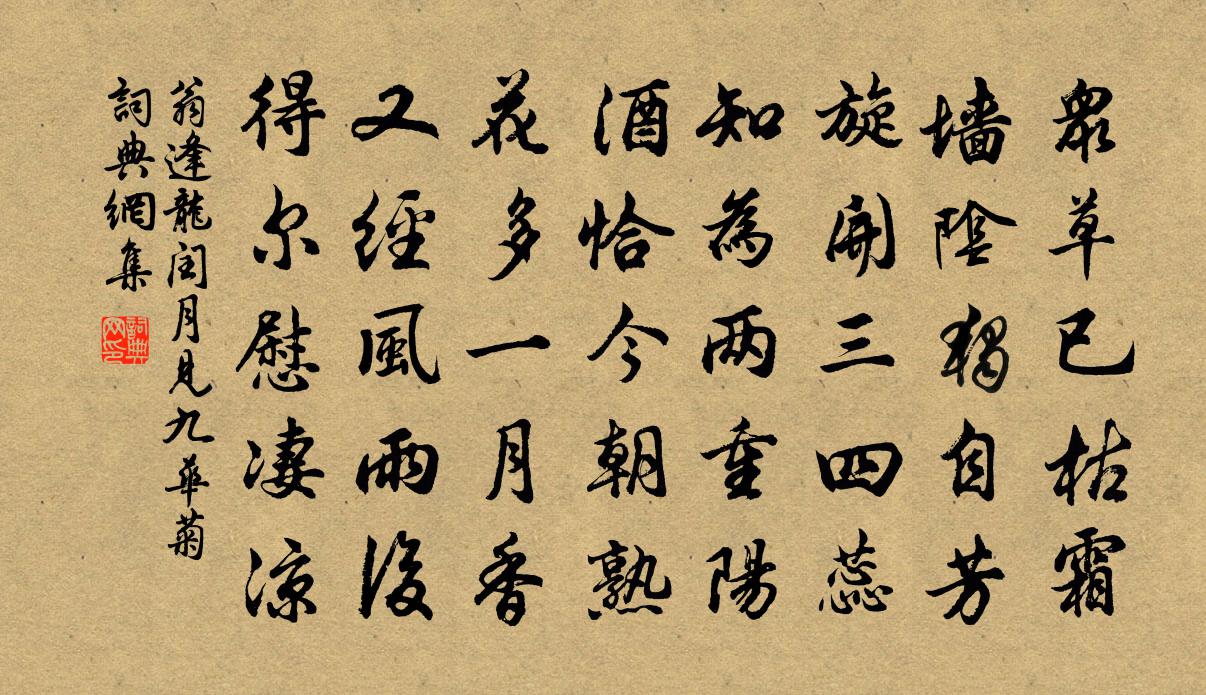 眾草已枯霜
墻陰獨自芳
旋開三四蕊
知為兩重陽
酒恰今朝熟
花多一月香
又經風雨後
得尔慰凄涼
翁逢龍閏月見九華菊
詞典網集
詞典
网印